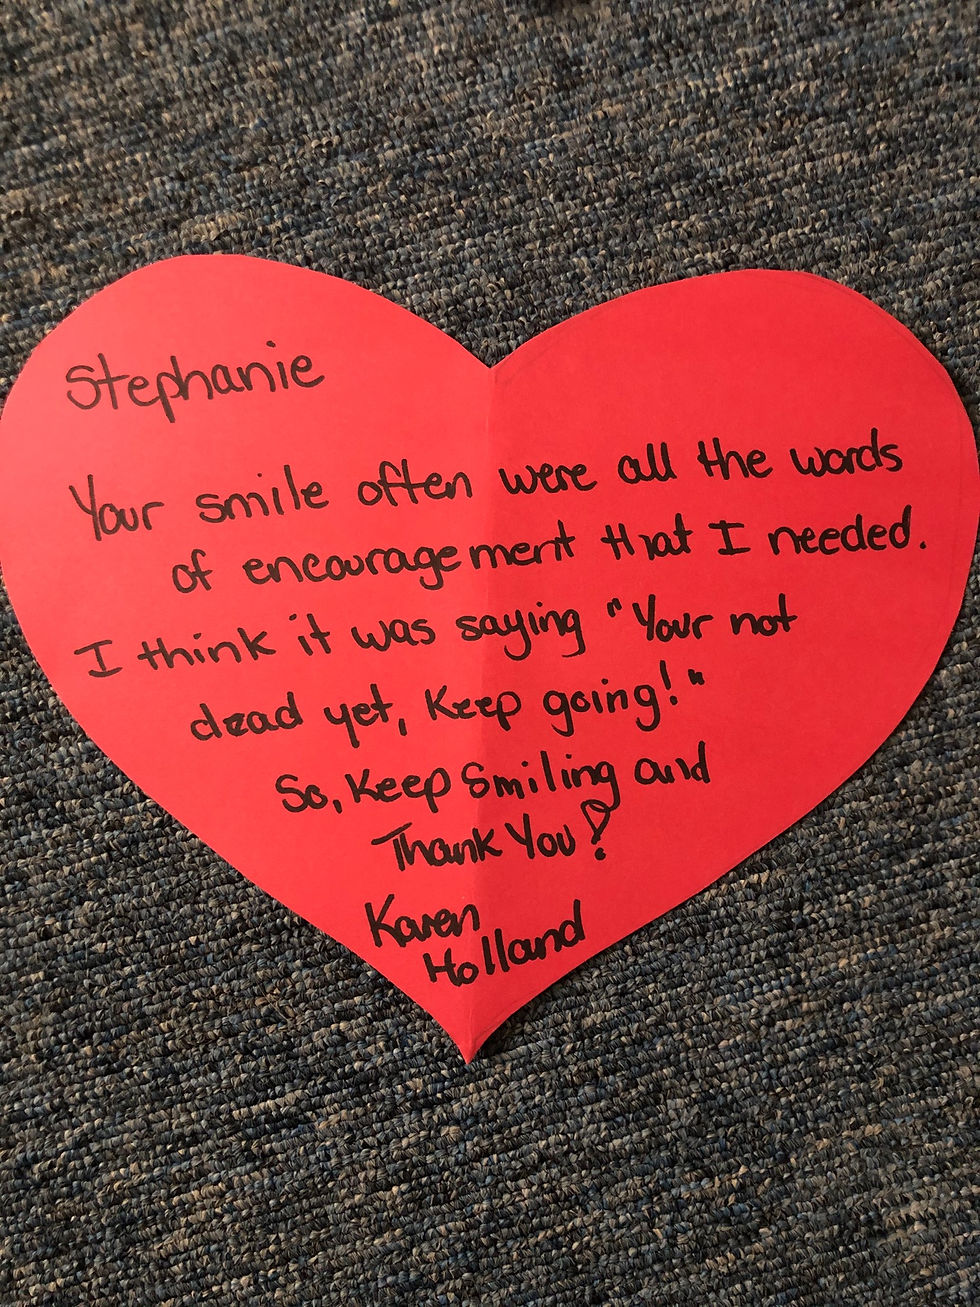 Stephanie
Your smile often were all the words
of encouragement that I needed.
I think it was saying "Your not
dead yet, Keep going!"
So, Keep Smiling and
Thank You!
Karen
Holland